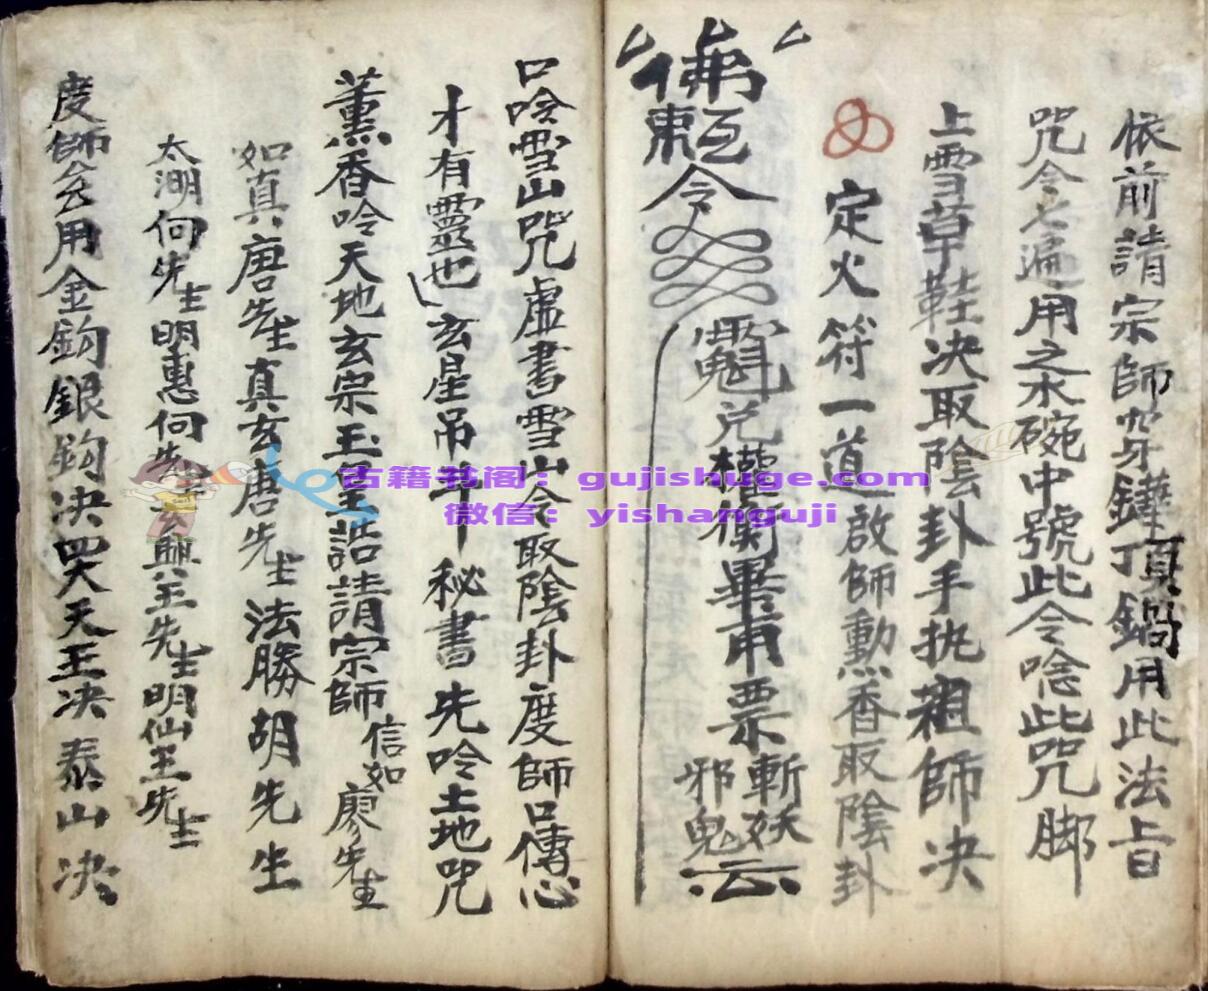 依前請宗師穿鏵頂鍋用此法旨
咒令七遍用之水碗中號此令唸此咒脚
上雪草鞋决取陰卦手执祖師决
定火符一道啟師動香取陰卦
佛
敕令
兑權衡畢甫票斬妖
邪鬼云
口唅雪山咒虚書雪山令取陰卦度師口傳心
才有靈也玄星吊斗秘書先唅土地咒
薰香唅天地玄宗玉皇誥請宗師信如廖先生
如真唐先生真玄唐先生法勝胡先生
太湖何先生明惠何先生玄興王先生明仙王先生
度師女用金鈎銀鈎决四大天王决泰山决
古籍书阁：gujishuge.com
微信：yishanguji